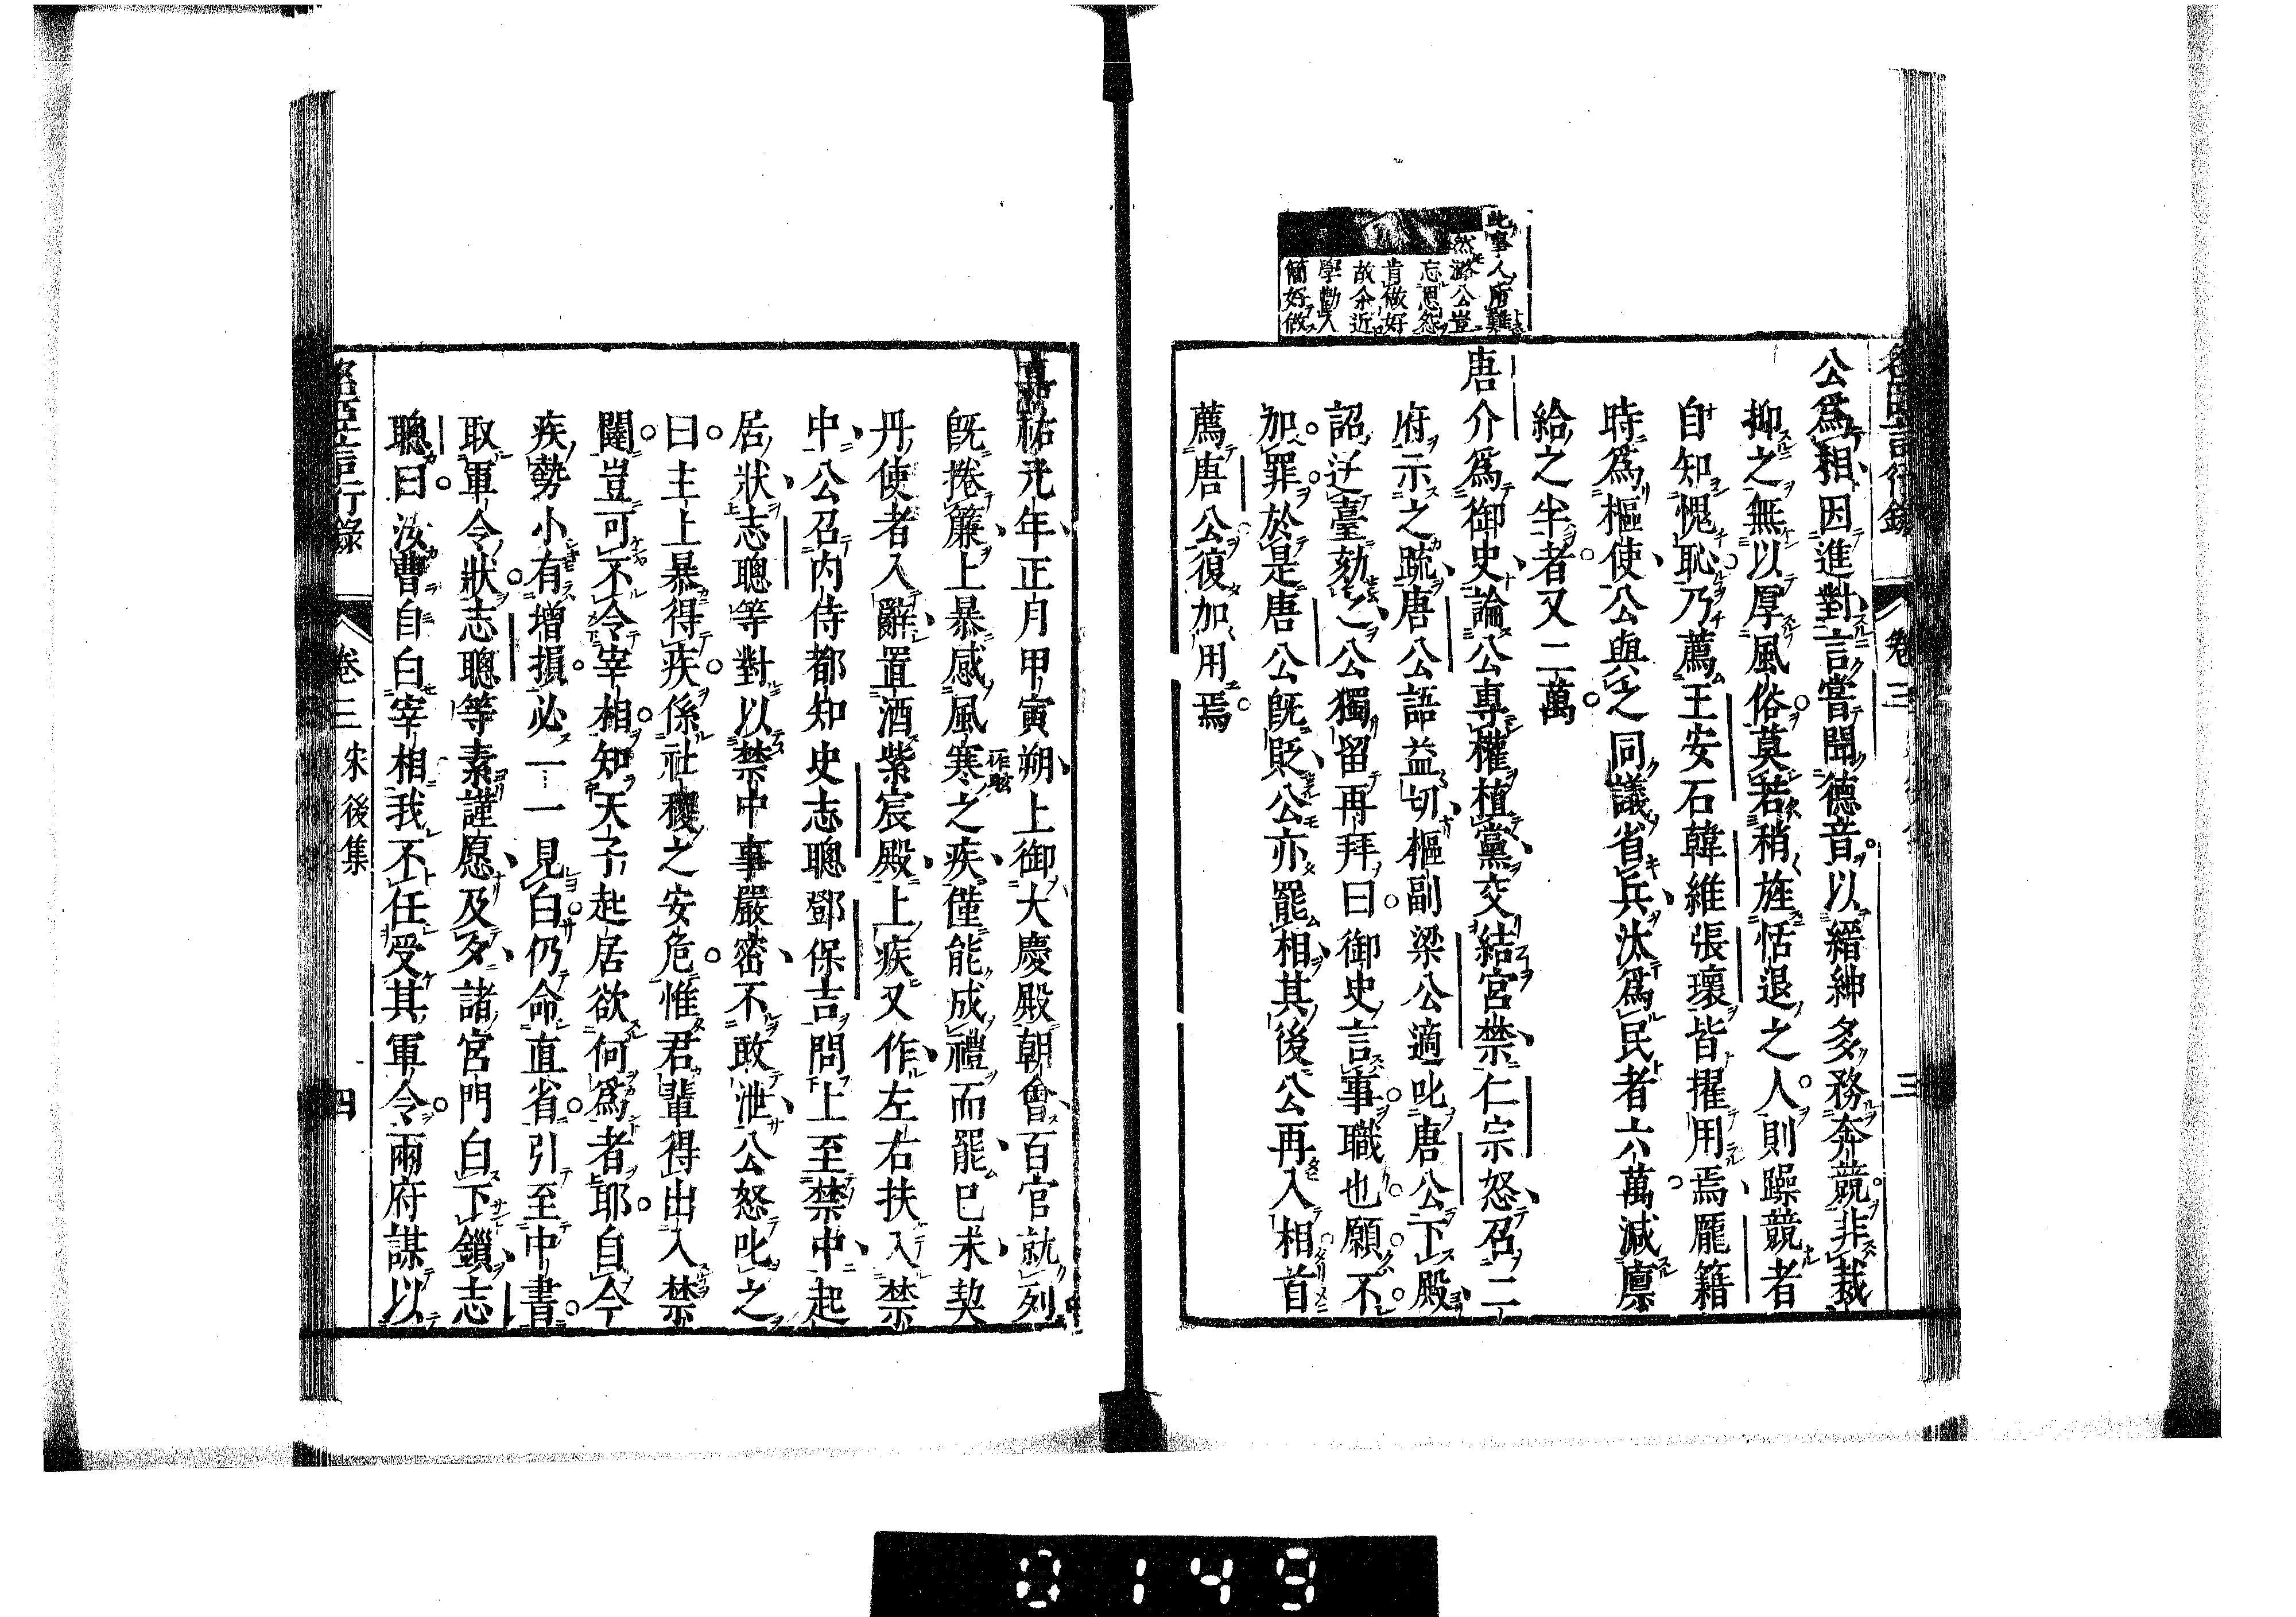 此事人所難
然潞公豈
忘恩怨
肯做好
故余近
學勸人
簡好做
公為相因進對言嘗聞德音以縉紳多務奔競非裁
抑之無以厚風俗莫若稍旌恬退之人則躁競者
自知愧恥乃薦王安石韓維張瓌皆擢用焉龐籍
時為樞使公與之同議省兵汰為民者六萬減廩
給之半者又二萬
唐介為御史論公專權植黨交結宮禁仁宗怒召二
府示之疏唐公語益切樞副梁公適叱唐公下殿
詔送臺劾之公獨留再拜曰御史言事職也願不
加罪於是唐公既貶公亦罷相其後公再入相首
薦唐公復加用焉
卷三
三
嘉祐元年正月甲寅朔上御大慶殿朝會百官就列
既捲簾上暴感風寒之疾僅能成禮而罷已未契
丹使者入辭置酒紫宸殿上疾又作左右扶入禁
中公召内侍都知史志聰鄧保吉問上至禁中起
居狀志聰等對以禁中事嚴密不敢泄公怒叱之
曰主上暴得疾係社稷之安危惟君輩得出入禁
闥豈可不令宰相知天子起居欲何為者耶自今
疾勢小有增損必一一見白仍命直省引至中書
取軍令狀志聰等素謹愿及夕諸宮門白下鎖志
聰曰汝曹自白宰相我不任受其軍令兩府謀以
名臣言行錄
卷三
宋後集
四
0149